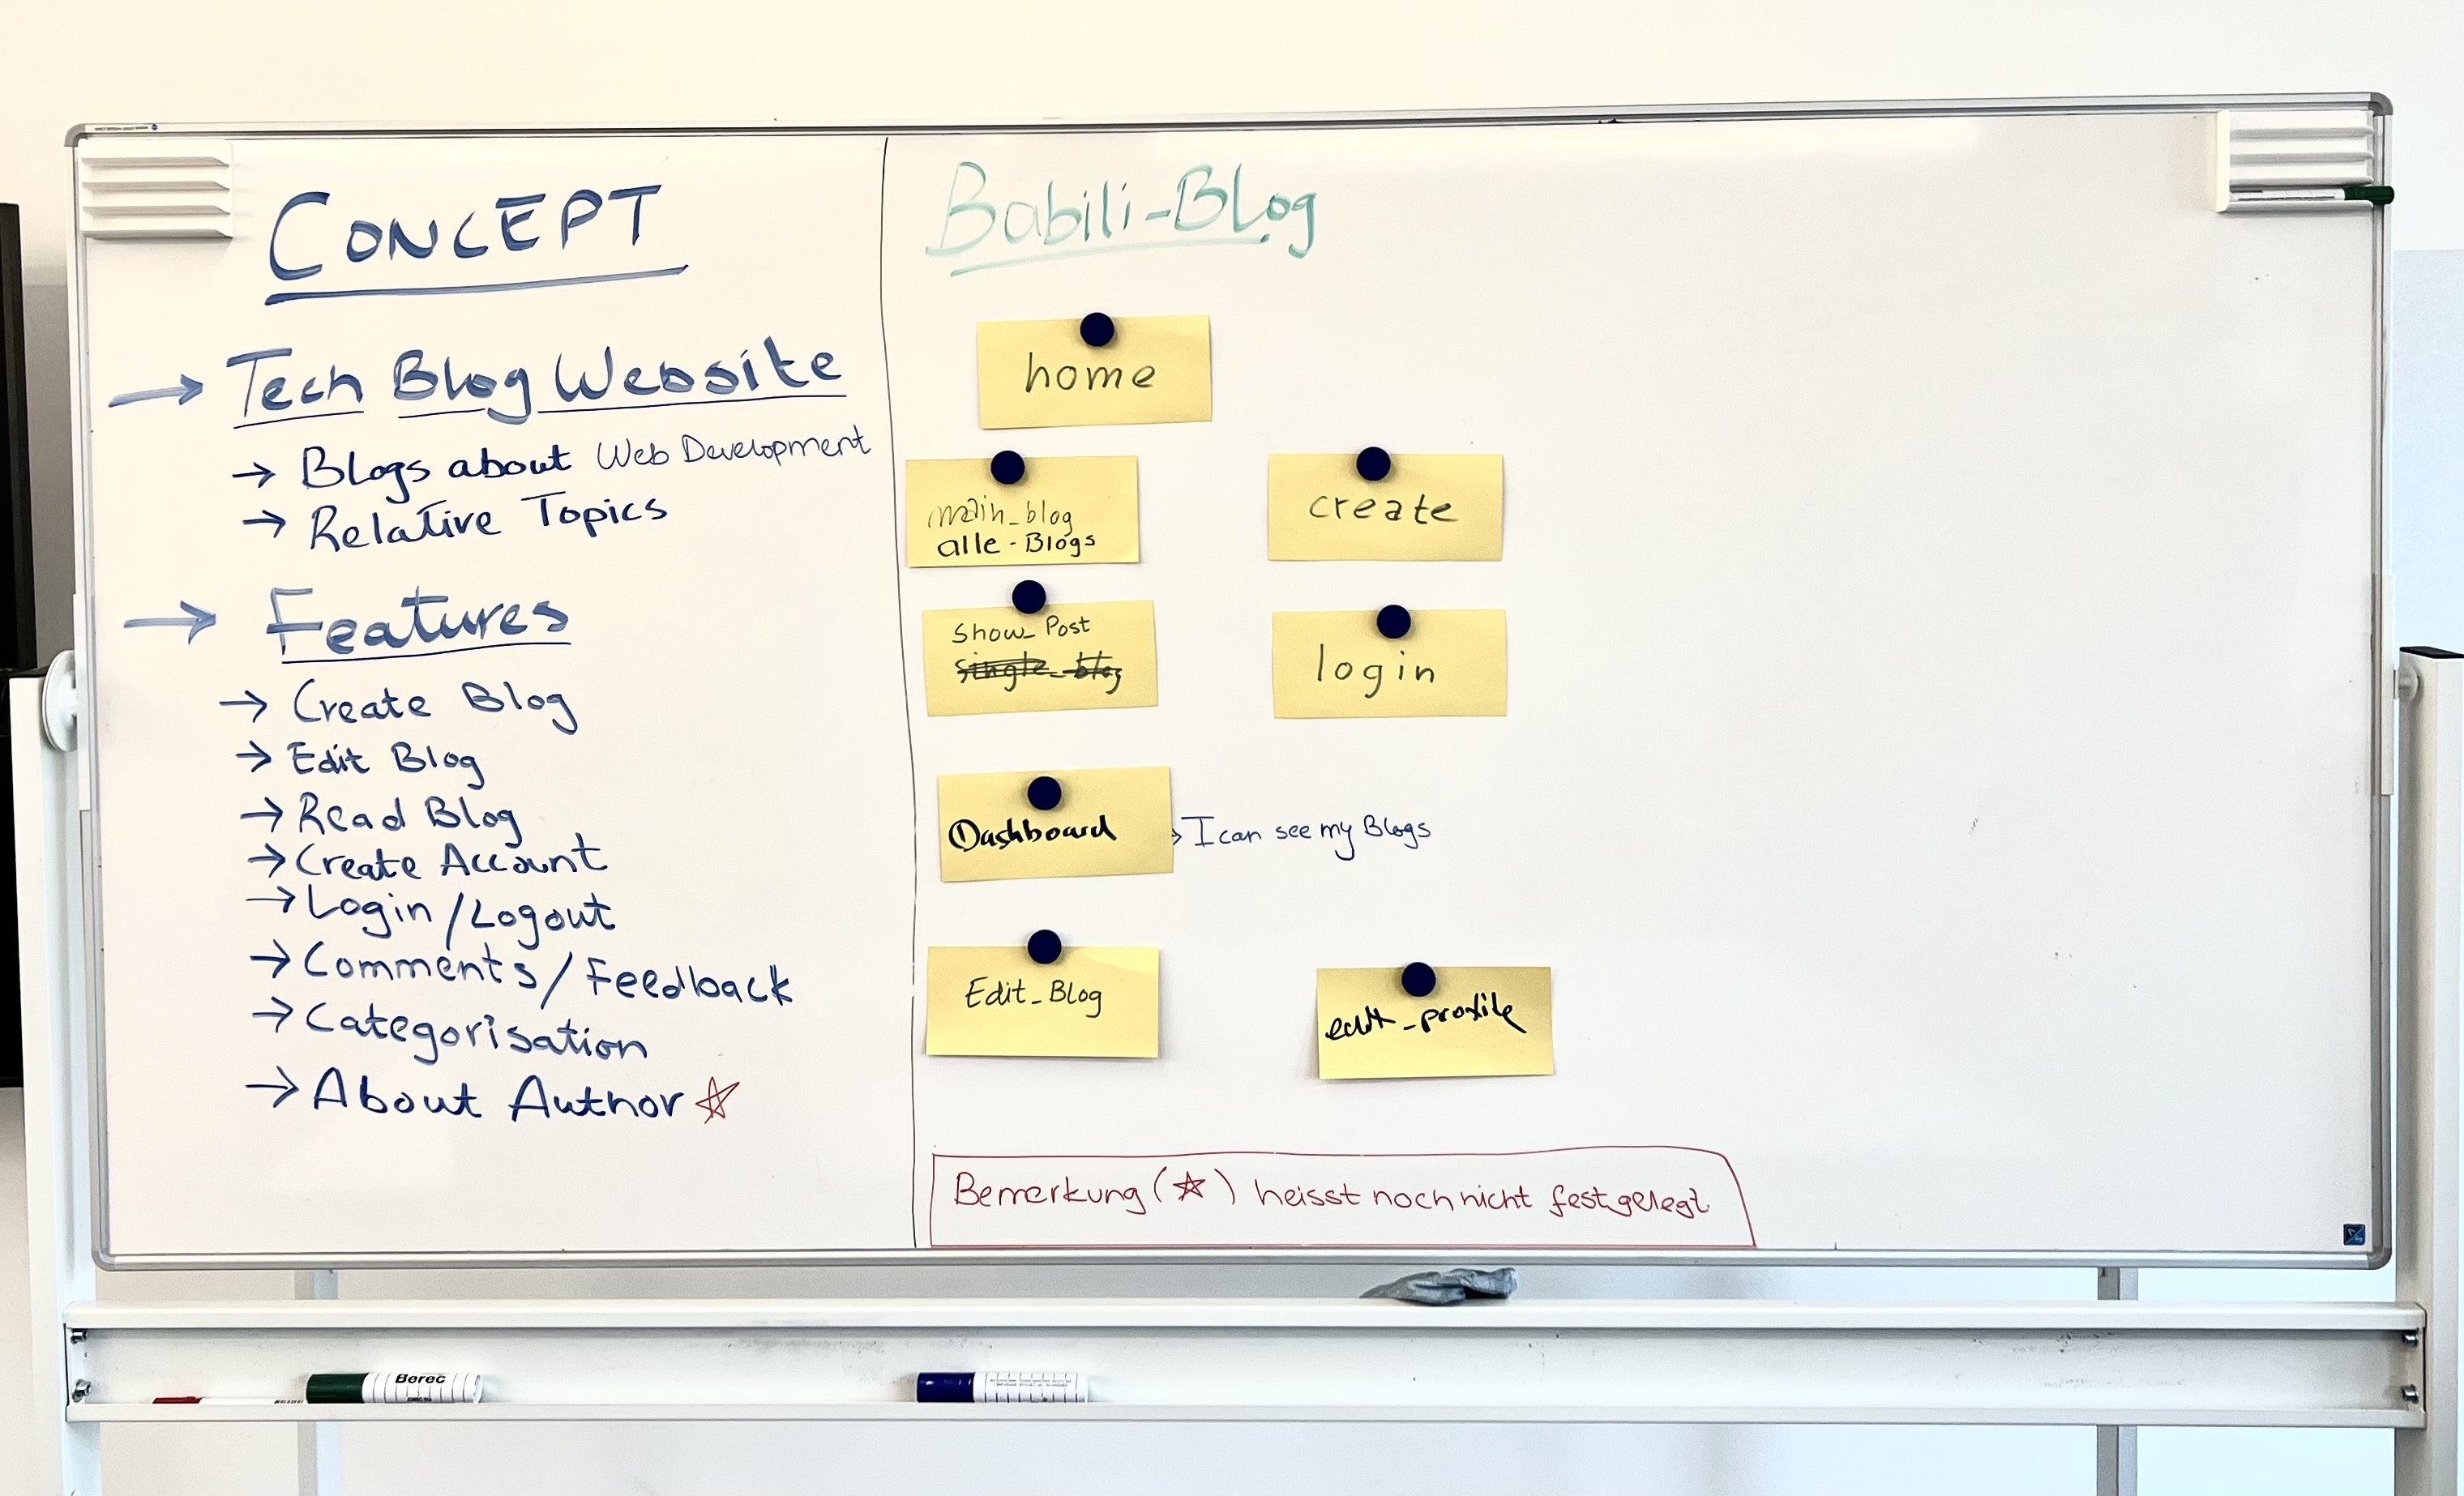 CONCEPT
→ Tech Blog Website
→ Blogs about Web Development
→ Relative Topics
→ Features
→ Create Blog
→ Edit Blog
→ Read Blog
→ Create Account
→ Login/Logout
→ Comments/Feedback
→ Categorisation
→ About Author ☆
Babili-Blog
home
main_blog
alle-Blogs
create
Show_Post
single_blog
login
Dashboard
→ I can see my Blogs
Edit_Blog
edit_profile
Bemerkung (☆) heisst noch nicht festgelegt
Berec